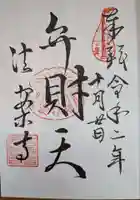 奉拝 令和二年
十月廿日
弁財天
法案寺